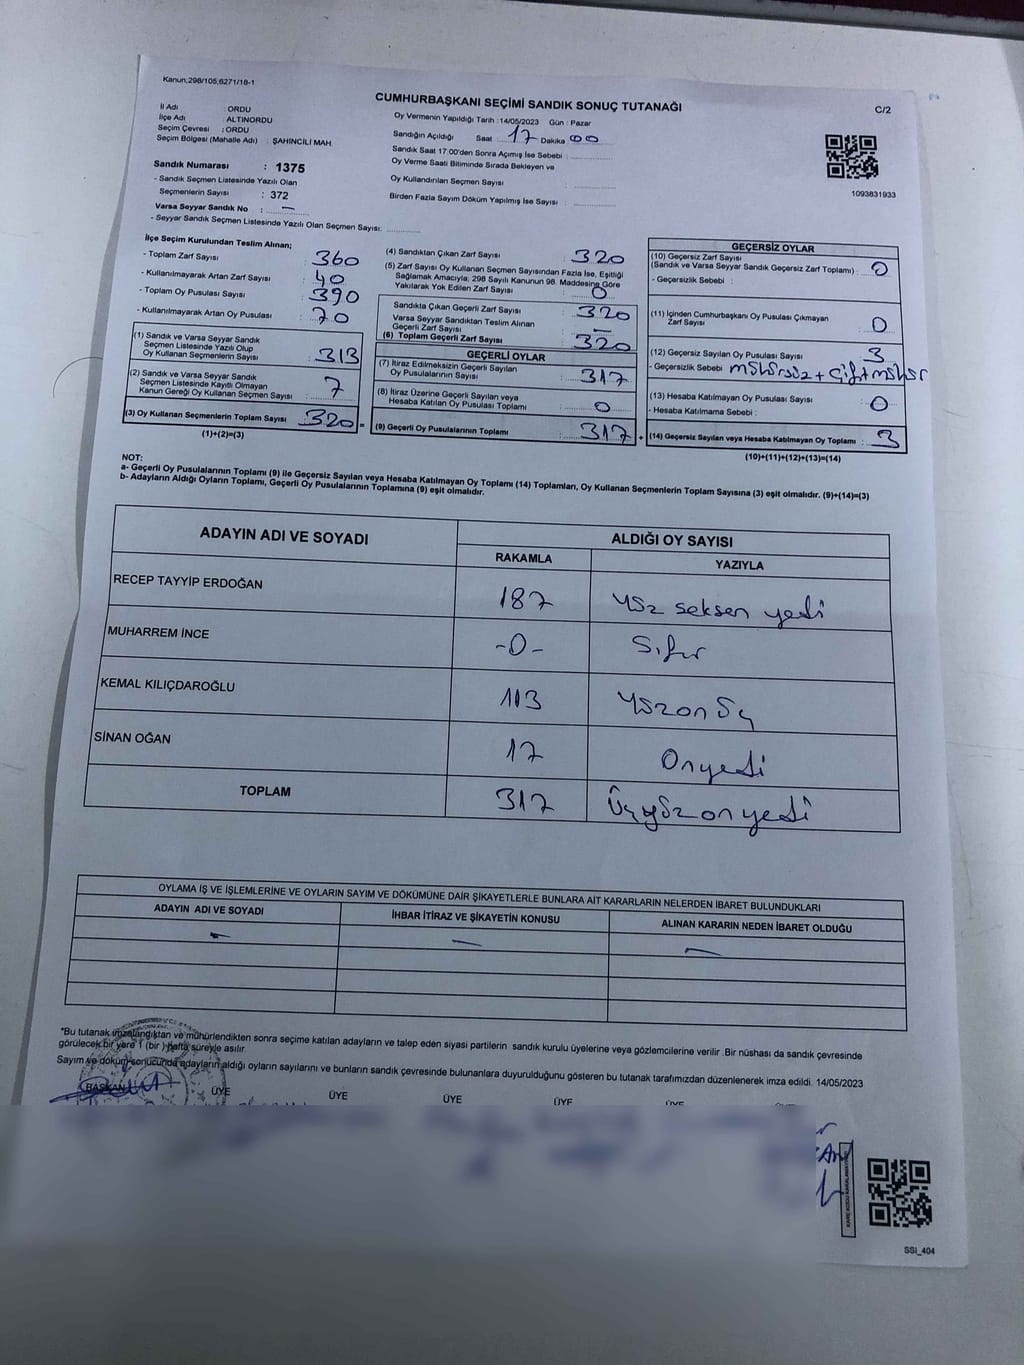 Kanun;298/105,6271/18-1
CUMHURBAŞKANI SEÇİMİ SANDIK SONUÇ TUTANAĞI
C/2
İl Adı : ORDU
İlçe Adı : ALTINORDU
Seçim Çevresi : ORDU
Seçim Bölgesi (Mahalle Adı) : ŞAHİNCİLİ MAH
Sandık Numarası : 1375
- Sandık Seçmen Listesinde Yazılı Olan
Seçmenlerin Sayısı : 372
Varsa Seyyar Sandık No : —
- Seyyar Sandık Seçmen Listesinde Yazılı Olan Seçmen Sayısı:
Oy Vermenin Yapıldığı Tarih :14/05/2023 Gün : Pazar
Sandığın Açıldığı Saat 17 Dakika 00
Sandık Saat 17:00'den Sonra Açımış İse Sebebi :
Oy Verme Saati Bitiminde Sırada Bekleyen ve
Oy Kullandırılan Seçmen Sayısı :
Birden Fazla Sayım Döküm Yapılmış İse Sayısı :
1093831933
İlçe Seçim Kurulundan Teslim Alınan;
- Toplam Zarf Sayısı : 360
- Kullanılmayarak Artan Zarf Sayısı : 40
- Toplam Oy Pusulası Sayısı : 390
- Kullanılmayarak Artan Oy Pusulası : 70
(1) Sandık ve Varsa Seyyar Sandık
Seçmen Listesinde Yazılı Olup
Oy Kullanan Seçmenlerin Sayısı : 313
(2) Sandık ve Varsa Seyyar Sandık
Seçmen Listesinde Kayıtlı Olmayan
Kanun Gereği Oy Kullanan Seçmen Sayısı : 7
(3) Oy Kullanan Seçmenlerin Toplam Sayısı : 320
(1)+(2)=(3)
(4) Sandıktan Çıkan Zarf Sayısı : 320
(5) Zarf Sayısı Oy Kullanan Seçmen Sayısından Fazla İse, Eşitliği
Sağlamak Amacıyla; 298 Sayılı Kanunun 98. Maddesine Göre
Yakılarak Yok Edilen Zarf Sayısı : 0
Sandıkta Çıkan Geçerli Zarf Sayısı : 320
Varsa Seyyar Sandıktan Teslim Alınan
Geçerli Zarf Sayısı : —
(6) Toplam Geçerli Zarf Sayısı : 320
GEÇERLİ OYLAR
(7) İtiraz Edilmeksizin Geçerli Sayılan
Oy Pusulalarının Sayısı : 317
(8) İtiraz Üzerine Geçerli Sayılan veya
Hesaba Katılan Oy Pusulası Toplamı : 0
(9) Geçerli Oy Pusulalarının Toplamı : 317
GEÇERSİZ OYLAR
(10) Geçersiz Zarf Sayısı
(Sandık ve Varsa Seyyar Sandık Geçersiz Zarf Toplamı) : 0
- Geçersizlik Sebebi :
(11) İçinden Cumhurbaşkanı Oy Pusulası Çıkmayan
Zarf Sayısı : 0
(12) Geçersiz Sayılan Oy Pusulası Sayısı : 3
- Geçersizlik Sebebi mühürsüz + Çift mühür
(13) Hesaba Katılmayan Oy Pusulası Sayısı : 0
- Hesaba Katılmama Sebebi :
(14) Geçersiz Sayılan veya Hesaba Katılmayan Oy Toplamı : 3
(10)+(11)+(12)+(13)=(14)
NOT:
a- Geçerli Oy Pusulalarının Toplamı (9) ile Geçersiz Sayılan veya Hesaba Katılmayan Oy Toplamı (14) Toplamları, Oy Kullanan Seçmenlerin Toplam Sayısına (3) eşit olmalıdır. (9)+(14)=(3)
b- Adayların Aldığı Oyların Toplamı, Geçerli Oy Pusulalarının Toplamına (9) eşit olmalıdır.
ADAYIN ADI VE SOYADI ALDIĞI OY SAYISI
RAKAMLA YAZIYLA
RECEP TAYYİP ERDOĞAN 187 Yüz seksen yedi
MUHARREM İNCE -0- Sıfır
KEMAL KILIÇDAROĞLU 113 Yüzonüç
SİNAN OĞAN 17 Onyedi
TOPLAM 317 Üçyüzonyedi
OYLAMA İŞ VE İŞLEMLERİNE VE OYLARIN SAYIM VE DÖKÜMÜNE DAİR ŞİKAYETLERLE BUNLARA AİT KARARLARIN NELERDEN İBARET BULUNDUKLARI
ADAYIN ADI VE SOYADI İHBAR İTİRAZ VE ŞİKAYETİN KONUSU ALINAN KARARIN NEDEN İBARET OLDUĞU
— — —
*Bu tutanak imzalandıktan ve mühürlendikten sonra seçime katılan adayların ve talep eden siyasi partilerin sandık kurulu üyelerine veya gözlemcilerine verilir .Bir nüshası da sandık çevresinde
görülecek bir yere 1 (bir ) hafta süreyle asılır.
Sayım ve döküm sonucunda adayların aldığı oyların sayılarını ve bunların sandık çevresinde bulunanlara duyurulduğunu gösteren bu tutanak tarafımızdan düzenlenerek imza edildi. 14/05/2023
BAŞKAN ÜYE ÜYE ÜYE ÜYE ÜYE
SSI_404